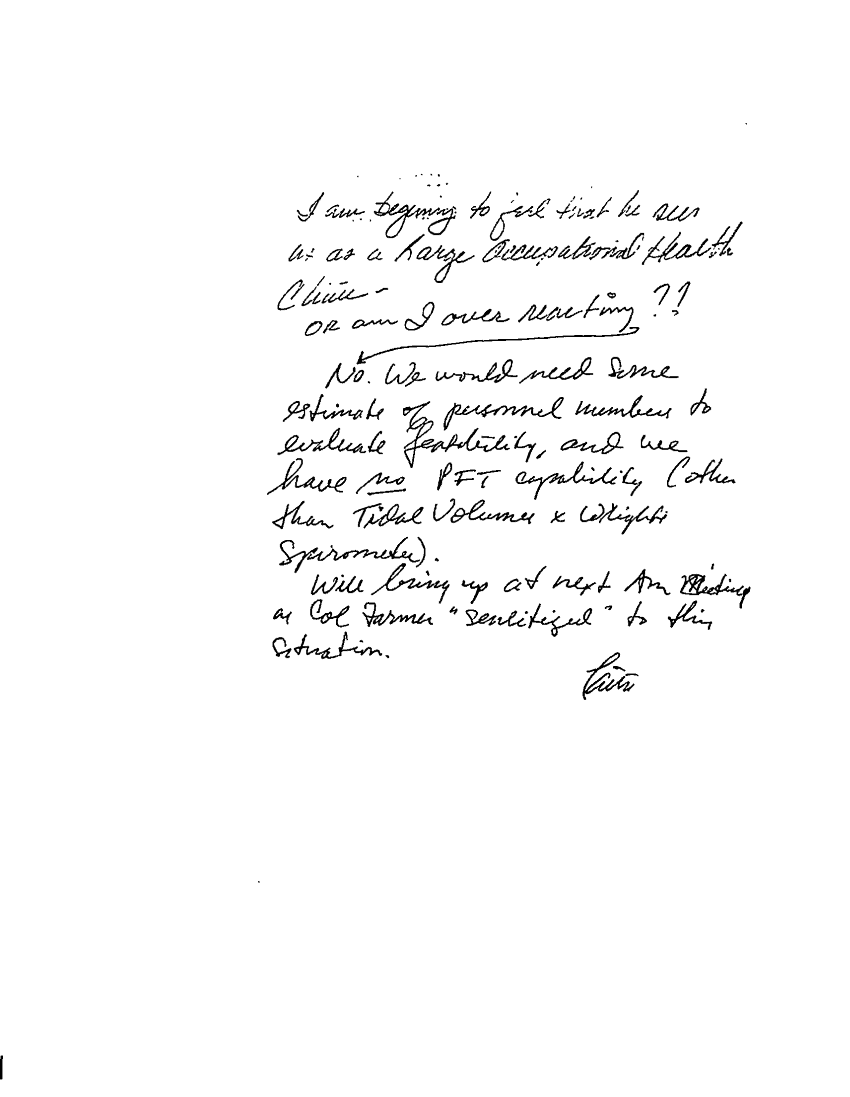 I am begining to feel that he sees
us as a large Occupational Health
Clinic -
OR am I over reacting ??
No. We would need some
estimate of personnel numbers to
evaluate feasibility, and we
have no PFT capability (other
than Tidal Volumes x Wright's
Spirometer).
Will bring up at next Am Meeting
as Col Farmer "sensitized" to this
situation.